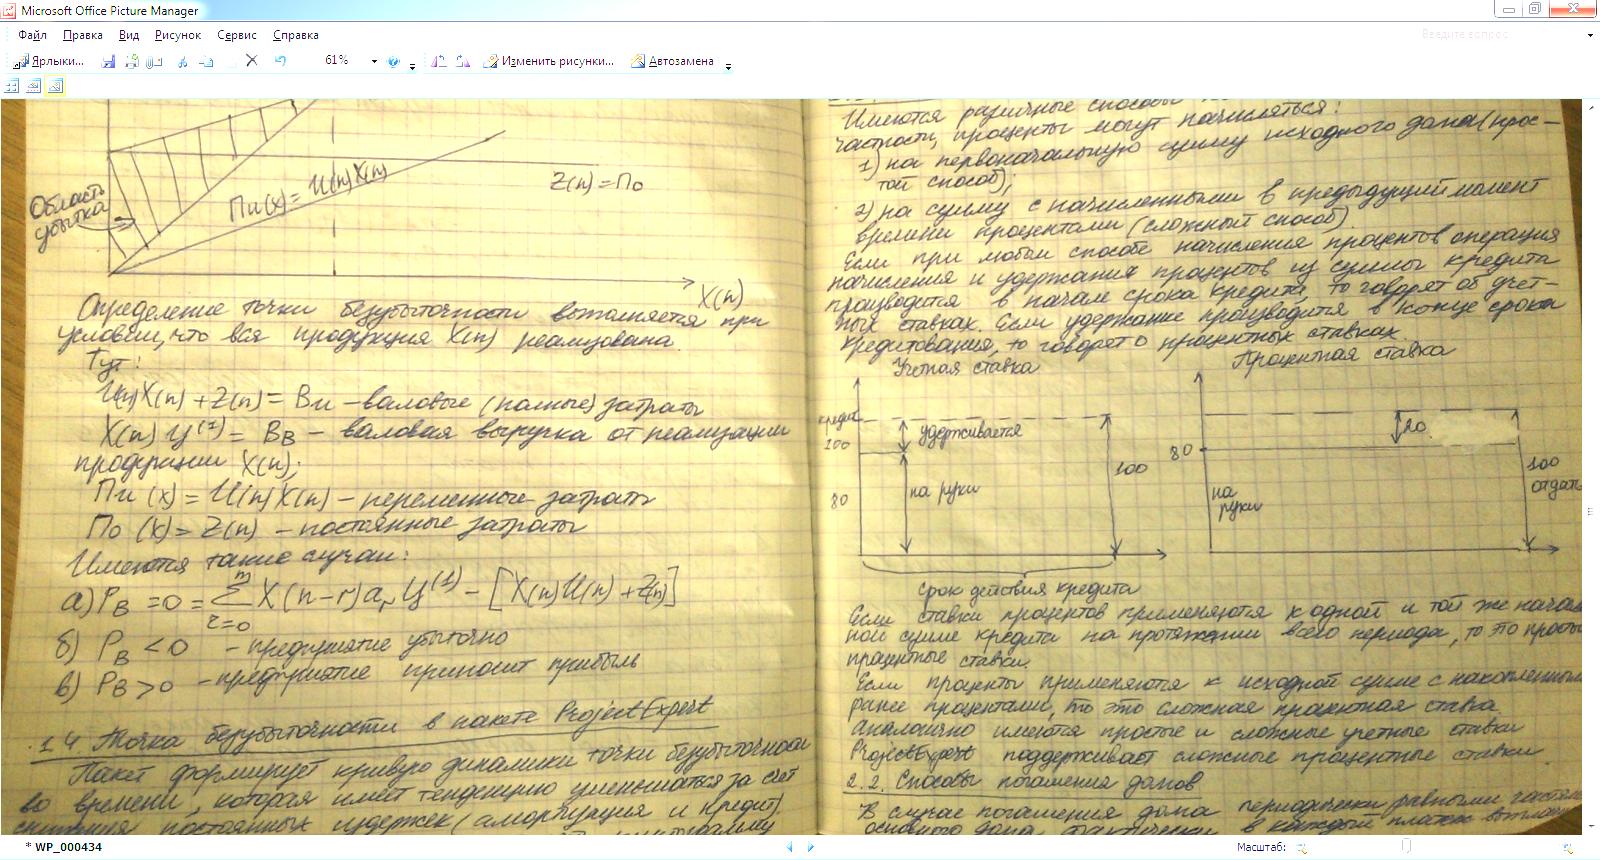 Microsoft Office Picture Manager
Файл Правка Вид Рисунок Сервис Справка
Введите вопрос
Ярлыки... 61% Изменить рисунки... Автозамена
Область
убытка
Пи(x)=И(n)X(n)
Z(n)=По
X(n)
Определение точки безубыточности выполняется при
условии, что вся продукция X(n) реализована.
Тут:
И(n)X(n)+Z(n)=Ви – валовые (полные) затраты
X(n)Ц⁽¹⁾=Вв – валовая выручка от реализации
продукции X(n);
Пи(x)=И(n)X(n) – переменные затраты
По(x)=Z(n) – постоянные затраты
Имеются такие случаи:
m
а) Pв=0=∑X(n-r)aᵣЦ⁽¹⁾-[X(n)И(n)+Z(n)]
r=0
б) Pв<0 – предприятие убыточно
в) Pв>0 – предприятие приносит прибыль
1.4 Точка безубыточности в пакете ProjectExpert
Пакет формирует кривую динамики точки безубыточности
во времени, которая имеет тенденцию уменьшаться за счёт
постоянных издержек (амортизация и кредит).
Имеются различные способы
частности, проценты могут начисляться:
1) на первоначальную сумму исходного долга (прос-
той способ);
2) на сумму с начисленными в предыдущий момент
времени процентами (сложный способ).
Если при любом способе начисления процентов операция
начисления и удержания процентов из суммы кредита
производится в начале срока кредита, то говорят об учёт-
ных ставках. Если удержание производится в конце срока
кредитования, то говорят о процентных ставках.
Учетная ставка
Процентная ставка
кредит
100
80
удерживается
на руки
100
срок действия кредита
80
20
на
руки
100
отдать
Если ставки процентов применяются к одной и той же началь
ной сумме кредита на протяжении всего периода, то это простые
процентные ставки.
Если проценты применяются к исходной сумме с накопленными
ранее процентами, то это сложная процентная ставка.
Аналогично имеются простые и сложные учетные ставки
ProjectExpert поддерживает сложные процентные ставки.
2.2. Способы погашения долгов
В случае погашения долга периодически равными частями
основного долга фактически в каждый платеж
* WP_000434
Масштаб: